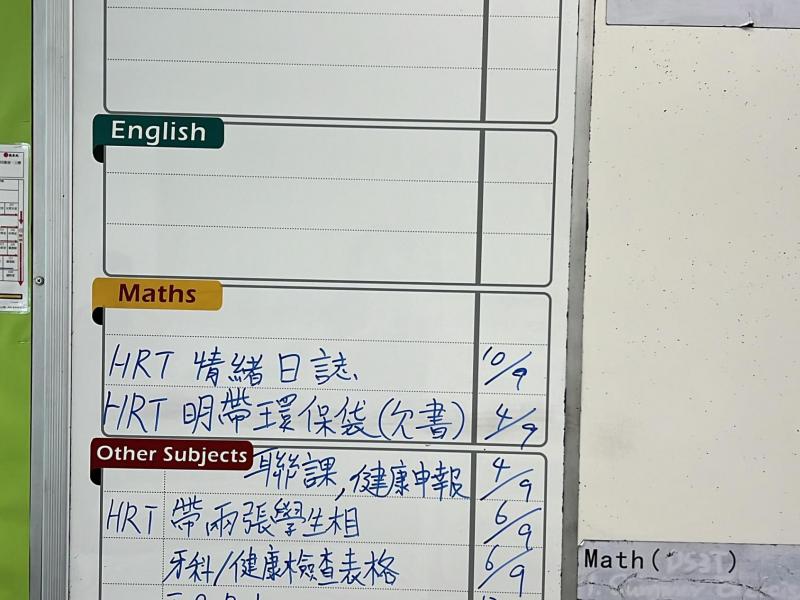 English
Maths
HRT 情緒日誌 10/9
HRT 明帶環保袋(欠書) 4/9
Other Subjects
聯課,健康申報 4/9
HRT 帶兩張學生相 6/9
牙科/健康檢查表格 6/9
Math( )